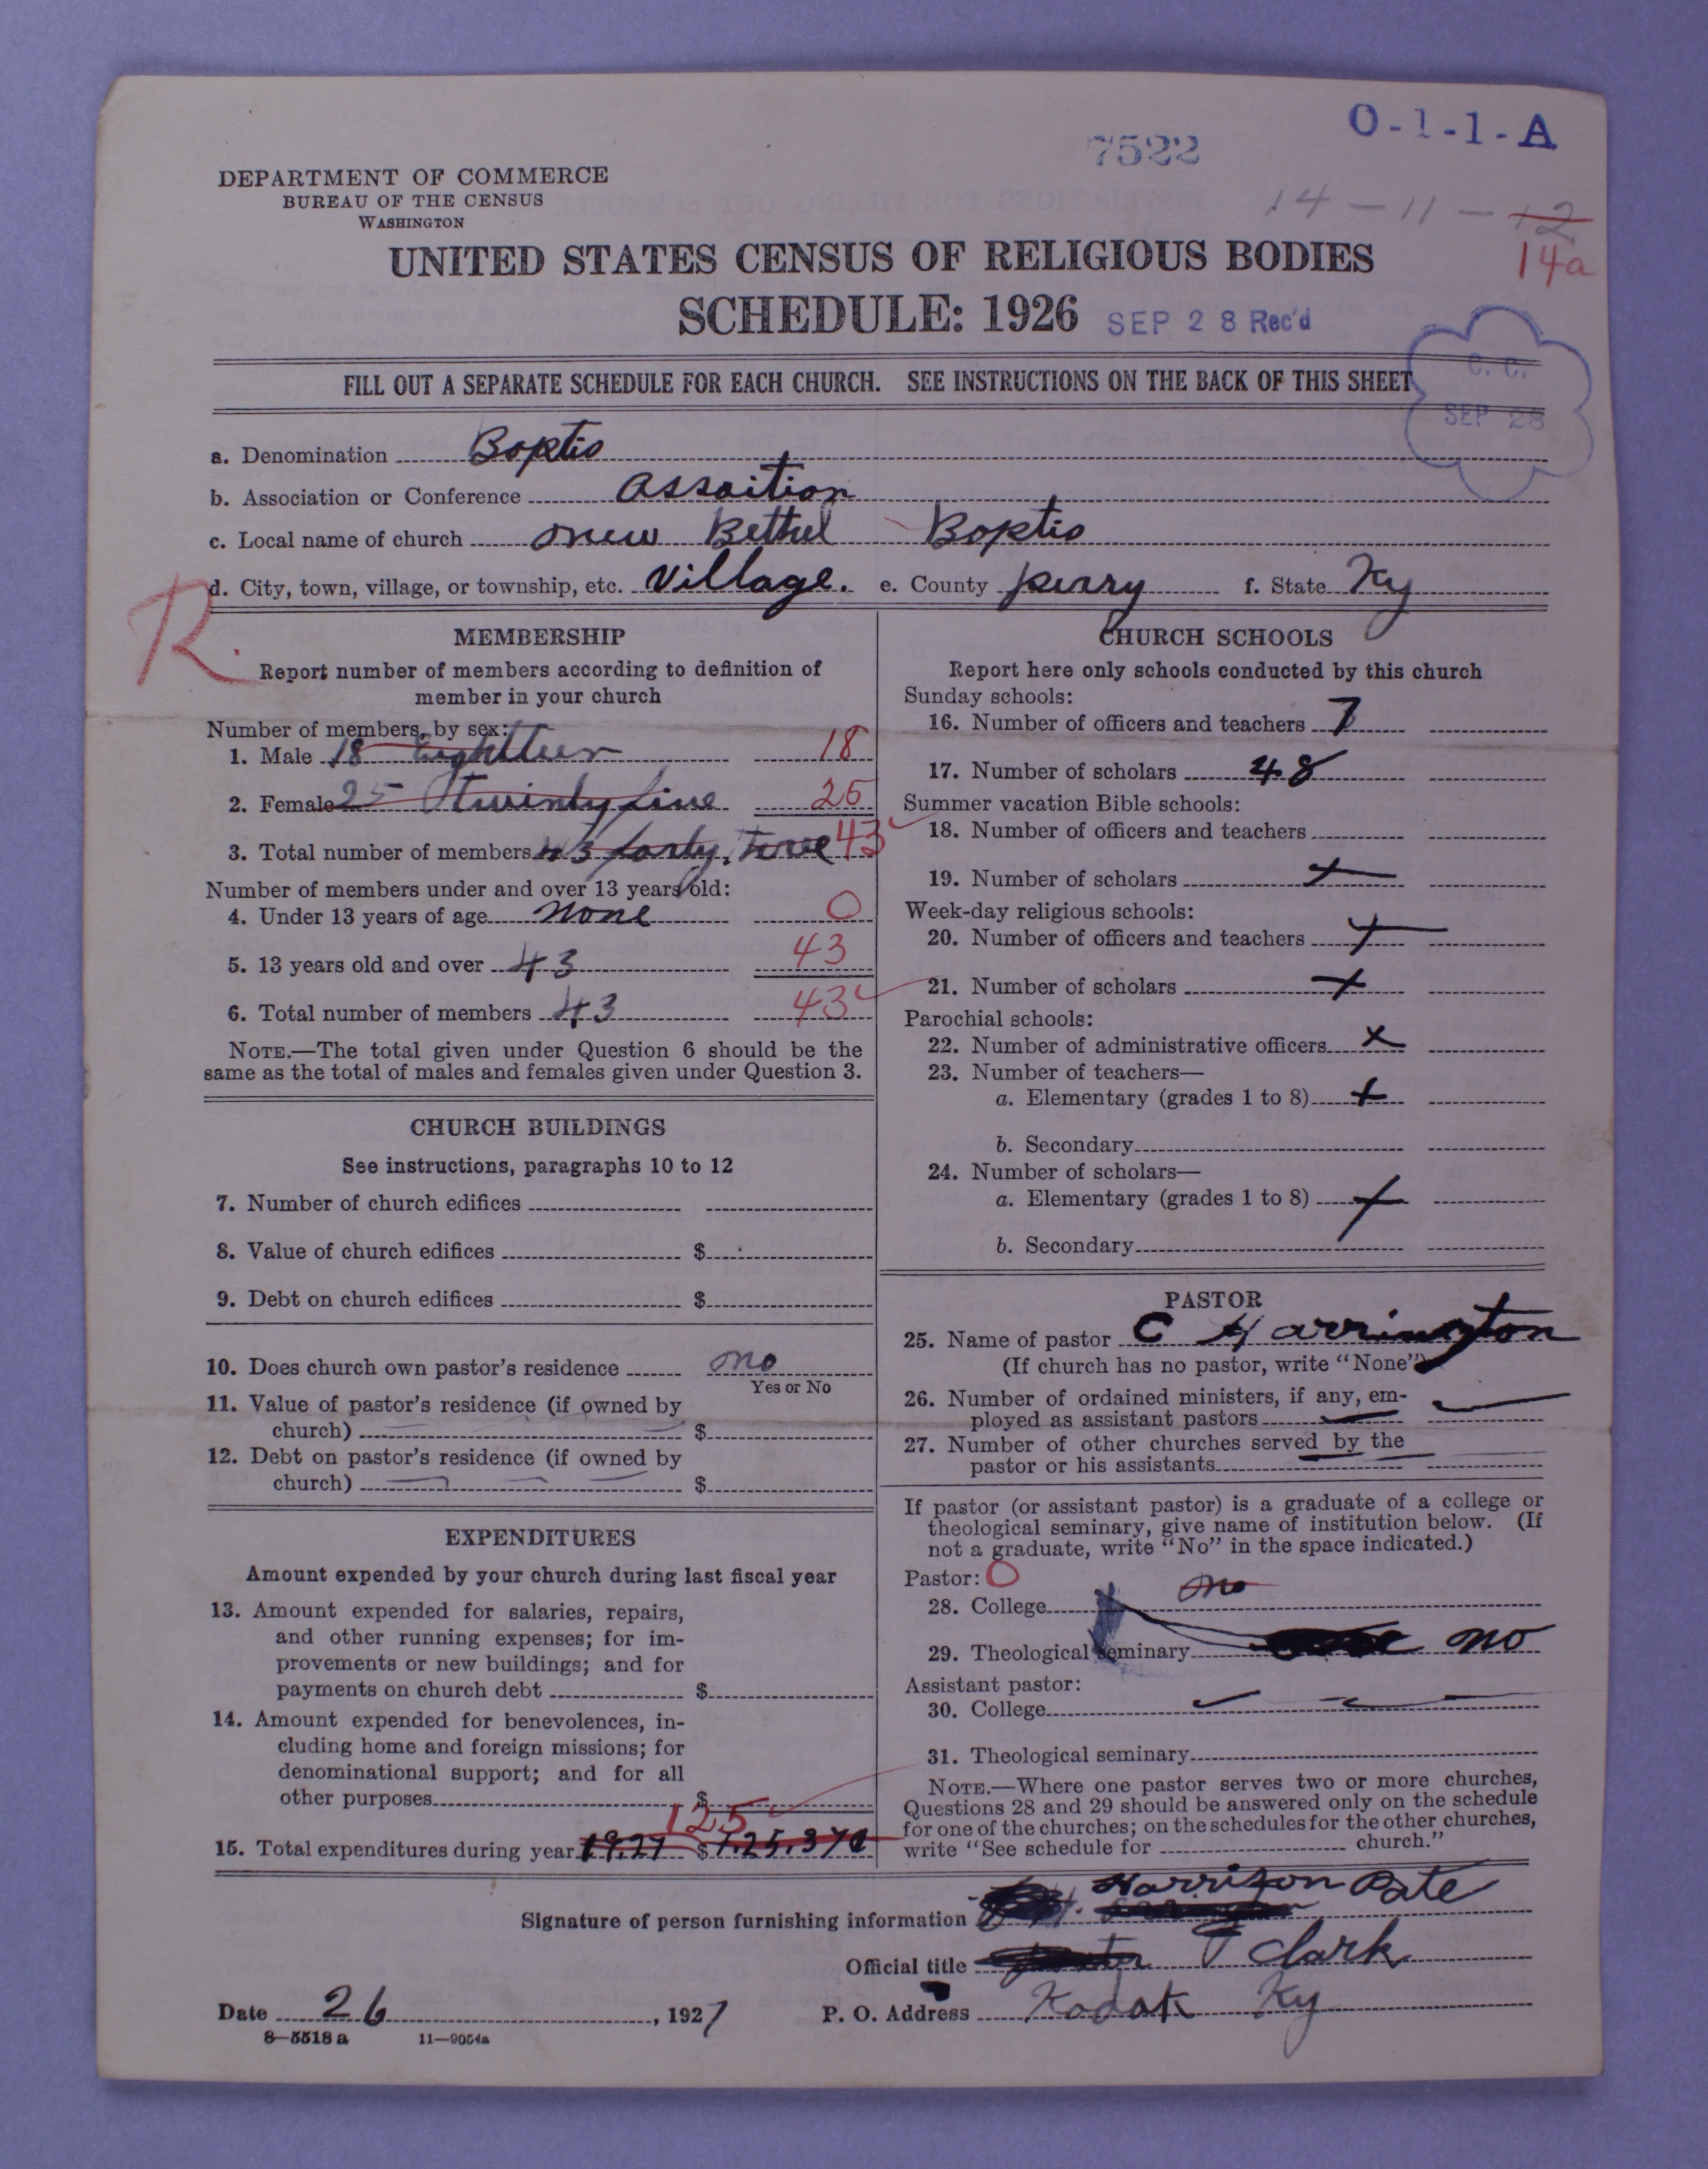 O-1-1-A
7522
DEPARTMENT OF COMMERCE
BUREAU OF THE CENSUS
WASHINGTON
14-11-12
14a
UNITED STATES CENSUS OF RELIGIOUS BODIES
SCHEDULE: 1926 SEP 28 Rec'd
C. C.
SEP 28
FILL OUT A SEPARATE SCHEDULE FOR EACH CHURCH. SEE INSTRUCTIONS ON THE BACK OF THIS SHEET
a. Denomination Boptis
b. Association or Conference Assoition
c. Local name of church new Bethel Boptis
d. City, town, village, or township, etc. Village. e. County perry f. State Ky
R.
MEMBERSHIP
Report number of members according to definition of
member in your church
Number of members, by sex:
1. Male 18 Eightteen 18
2. Female 25 twinty five 25
3. Total number of members 43 forty, 43
Number of members under and over 13 years old:
4. Under 13 years of age none 0
5. 13 years old and over 43 43
6. Total number of members 43 43
NOTE.—The total given under Question 6 should be the
same as the total of males and females given under Question 3.
CHURCH BUILDINGS
See instructions, paragraphs 10 to 12
7. Number of church edifices
8. Value of church edifices $
9. Debt on church edifices $
10. Does church own pastor's residence no
Yes or No
11. Value of pastor's residence (if owned by
church) $
12. Debt on pastor's residence (if owned by
church) $
EXPENDITURES
Amount expended by your church during last fiscal year
13. Amount expended for salaries, repairs,
and other running expenses; for im-
provements or new buildings; and for
payments on church debt $
14. Amount expended for benevolences, in-
cluding home and foreign missions; for
denominational support; and for all
other purposes $
125
15. Total expenditures during year 1927 $
CHURCH SCHOOLS
Report here only schools conducted by this church
Sunday schools:
16. Number of officers and teachers 7
17. Number of scholars 48
Summer vacation Bible schools:
18. Number of officers and teachers
19. Number of scholars
Week-day religious schools:
20. Number of officers and teachers
21. Number of scholars
Parochial schools:
22. Number of administrative officers x
23. Number of teachers—
a. Elementary (grades 1 to 8)
b. Secondary
24. Number of scholars—
a. Elementary (grades 1 to 8)
b. Secondary
PASTOR
25. Name of pastor C Harrington
(If church has no pastor, write "None")
26. Number of ordained ministers, if any, em-
ployed as assistant pastors
27. Number of other churches served by the
pastor or his assistants
If pastor (or assistant pastor) is a graduate of a college or
theological seminary, give name of institution below. (If
not a graduate, write "No" in the space indicated.)
Pastor: 0
28. College no
29. Theological seminary no
Assistant pastor:
30. College
31. Theological seminary
NOTE.—Where one pastor serves two or more churches,
Questions 28 and 29 should be answered only on the schedule
for one of the churches; on the schedules for the other churches,
write "See schedule for church."
Signature of person furnishing information Harrison Pate
Official title Clark
Date 26, 1927 P. O. Address Kodak Ky
8—5518 a 11—9054a